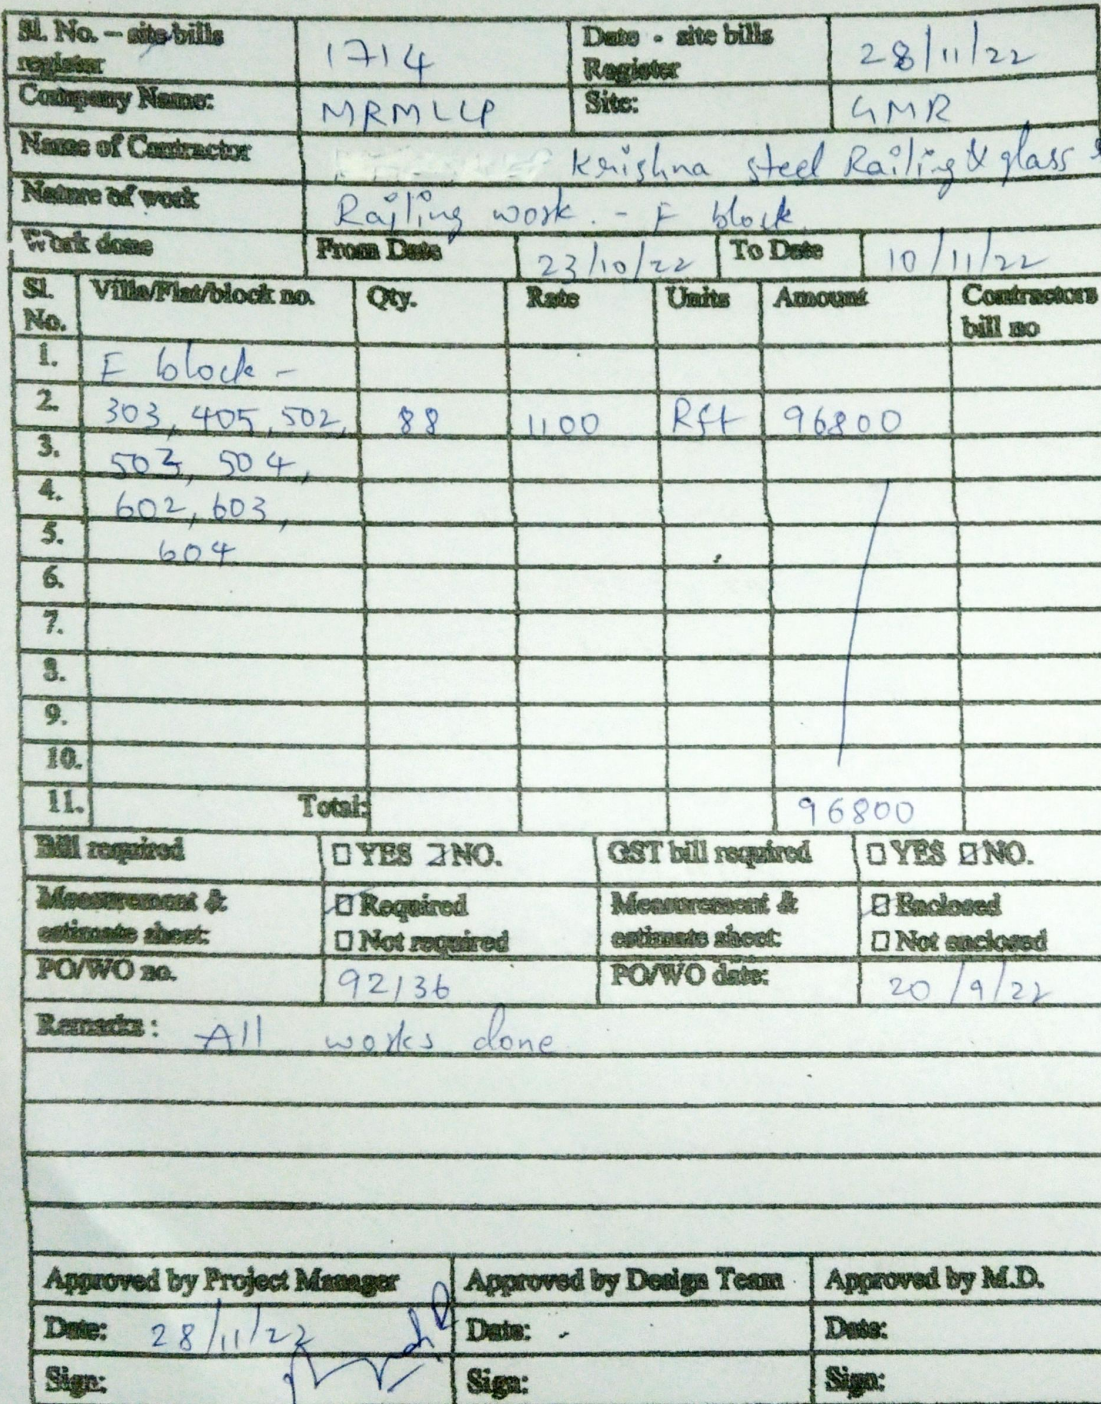 Sl. No. – site bills register 1714 Date - site bills Register 28/11/22
Company Name: MRMLLP Site: GMR
Name of Contractor Krishna steel Railing & glass
Nature of work Railing work. - F block
Work done From Date 23/10/22 To Date 10/11/22
Sl. No. Villa/Flat/block no. Qty. Rate Units Amount Contractors bill no
1. F block -
2. 303, 405, 502, 88 1100 Rft 96800
3. 503, 504,
4. 602, 603,
5. 604
6.
7.
8.
9.
10.
11. Total: 96800
Bill required YES NO. GST bill required YES NO.
Measurement & estimate sheet: Required Not required Measurement & estimate sheet: Enclosed Not enclosed
PO/WO no. 92136 PO/WO date: 20/9/22
Remarks : All works done
Approved by Project Manager Approved by Design Team Approved by M.D.
Date: 28/11/22 Date: Date:
Sign: Sign: Sign: